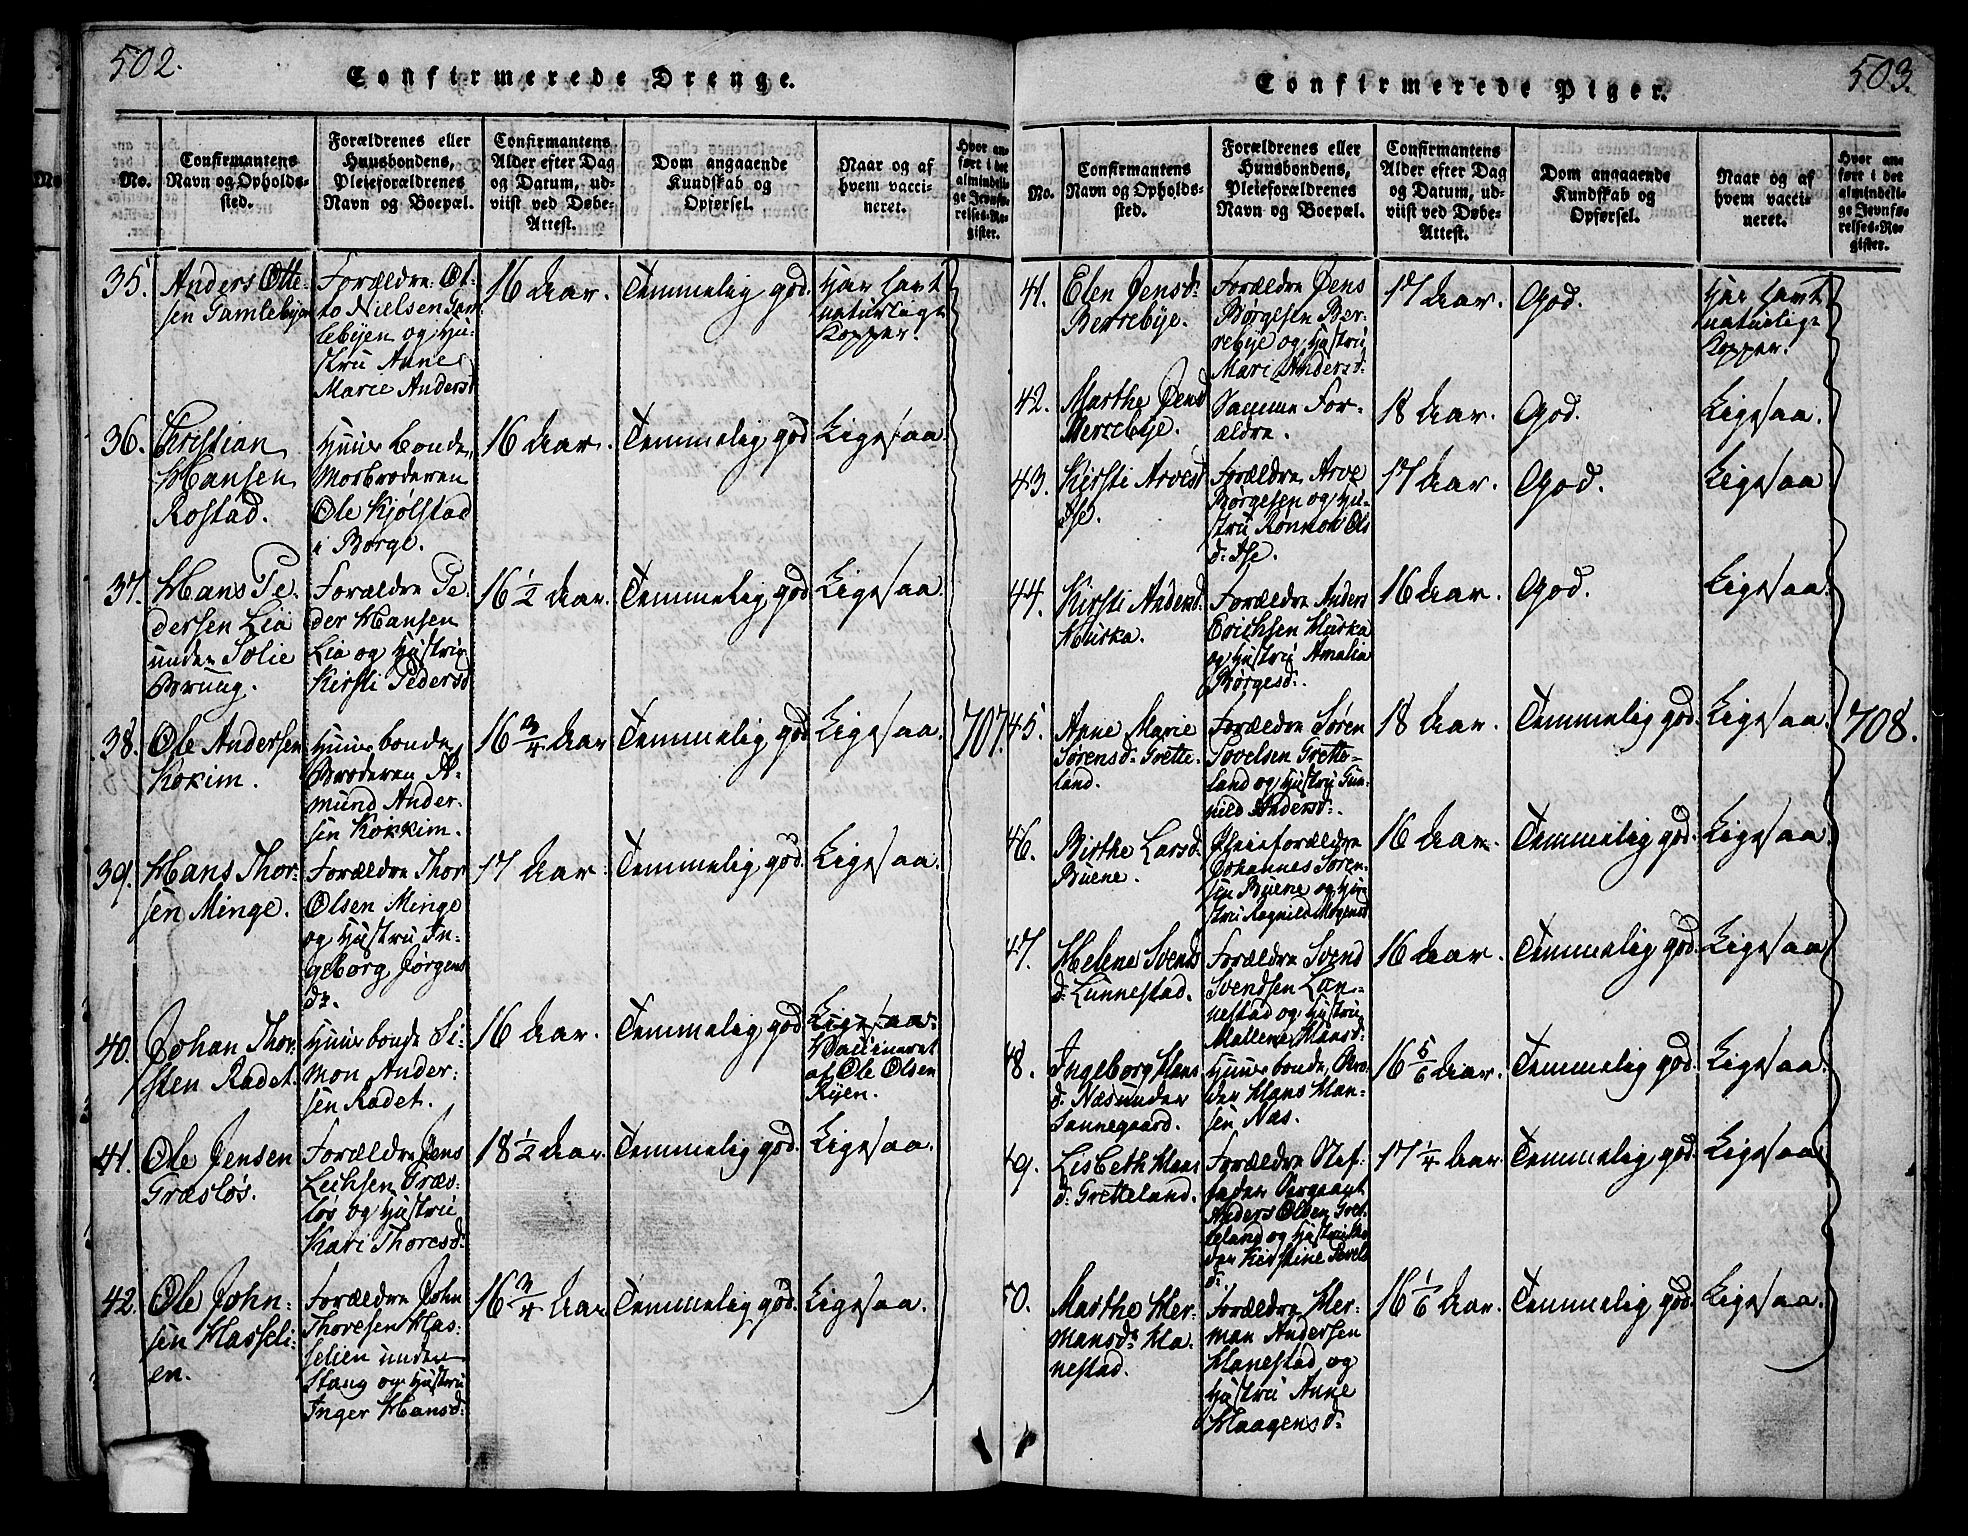 502.
Confirmerede Drenge.
No.
Confirmantens
Navn og Opholds-
sted.
Forældrenes eller
Huusbondens,
Pleieforældrenes
Navn og Boepæl.
Confirmantens
Alder efter Dag
og Datum, ud-
viist ved Døbe-
Attest.
Dom angaaende
Kundskab og
Opførsel.
Naar og af
hvem vacci-
neret.
Hvor an-
ført i det
almindeli-
ge Jevnfø-
relses-Re-
gister.
35.
Anders Otte-
sen Gamlebyen
Forældre: Ot-
to Nielsen Gam
lebyen og Hu-
stru Anne
Marie Andersd
16 Aar.
Temmelig god.
Har havt
naturlige
Kopper.
36.
Christian
Hansen
Rostad.
Huusbonde
Morbroderen
Ole Kjølstad
i Borge.
16 Aar.
Temmelig god
Ligesaa.
37.
Hans Pe-
dersen Lia
under Solie
Brug.
Forældre Pe-
der Hansen
Lia og Hustru
Kirsti Pedersd
16 1/2 Aar.
Temmelig god
Ligesaa.
38.
Ole Andersen
Kokim.
Huusbonde
Broderen A-
mund Ander-
sen Kokkim.
16 3/4 Aar
Temmelig god
Ligesaa.
707.
39.
Hans Thor-
sen Minge.
Forældre Thor
Olsen Minge
og Hustru In-
geborg Jørgens
dr.
17 Aar.
Temmelig god.
Ligesaa.
40.
Johan Thor-
sten Radet.
Huusbonde Si-
mon Ander-
sen Radet.
16 Aar.
Temmelig god
Ligesaa.
Vaccineret
af Ole Olsen
Ryen.
41.
Ole Jensen
Græsløs.
Forældre Jens
Leichsen Græs-
løs og Hustru
Kari Thoresd.
18 1/2 Aar.
Temmelig god.
Ligesaa.
42.
Ole John-
sen Hasseli-
en.
Forældre John
Thoresen Has-
selien under
Stang og Hustru
Inger Hansd:
16 3/4 Aar
Temmelig god.
Ligesaa.
503.
Confirmerede Piger.
No.
Confirmantens
Navn og Opholds-
sted.
Forældrenes eller
Huusbondens,
Pleieforældrenes
Navn og Boepæl.
Confirmantens
Alder efter Dag
og Datum, ud-
viist ved Døbe-
Attest.
Dom angaaende
Kundskab og
Opførsel.
Naar og af
hvem vacci-
neret.
Hvor an-
ført i det
almindeli-
ge Jevnfø-
relses-Re-
gister.
41.
Elen Jensd:
Berrebye.
Forældre Jens
Børgesen Ber-
rebye og Hustru
Mari Andersd:
17 Aar.
God.
Har havt
naturlige
Kopper.
42.
Marthe Jensd
Berrebye.
Samme For-
ældre.
18 Aar.
God.
Ligesaa.
43.
Kirsti Arvesd
Ise.
Forældre Arve
Børgesen og Hu-
stru Ronnou Ols
d: Ise.
17 Aar.
God.
Ligesaa
44.
Kirsti Andersd.
Hurka.
Forældre Anders
Erichsen Hurka
og Hustru Amalia
Børgesd:.
16 Aar.
God.
Ligesaa.
45.
Anne Marie
Sørensd: Grette-
land.
Forældre Søren
Povelsen Grette-
land og Hustru Gun-
nild Andersd:.
18 Aar.
Temmelig god.
Ligesaa.
708.
46.
Birthe Larsd.
Buene.
Pleieforældre
Johannes Søren-
sen Buene og Hu-
stru Ragnild Mogensd
16 Aar.
Temmelig god.
Ligesaa.
47.
Helene Svends
d: Lunnestad.
Forældre Svend
Svendsen Lun-
nestad og Hustru
Mallene Hansd:
16 Aar.
Temmelig god.
Ligesaa
48.
Ingeborg Hans
d. Næs under
Sannegaard.
Huusbonde, Bro-
der Hans Han-
sen Næs.
16 5/6 Aar.
Temmelig god.
Ligesaa.
49.
Lisbeth Hans
d: Gretteland.
Forældre Stif-
fader Sergeant
Anders Olsen Gret-
teland og Hustru Mo
der Kirstine Povels
d:
17 1/4 Aar.
Temmelig god.
Ligesaa
50.
Marthe Her-
mansd: Ha-
nestad.
Forældre Her-
man Andersen
Hanestad og
Hustru Anne
Haagensd:
16 1/6 Aar.
Temmelig god.
Ligesaa.